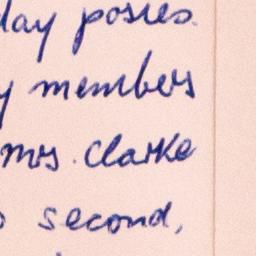 day posies.
members
mrs. Clarke
second,